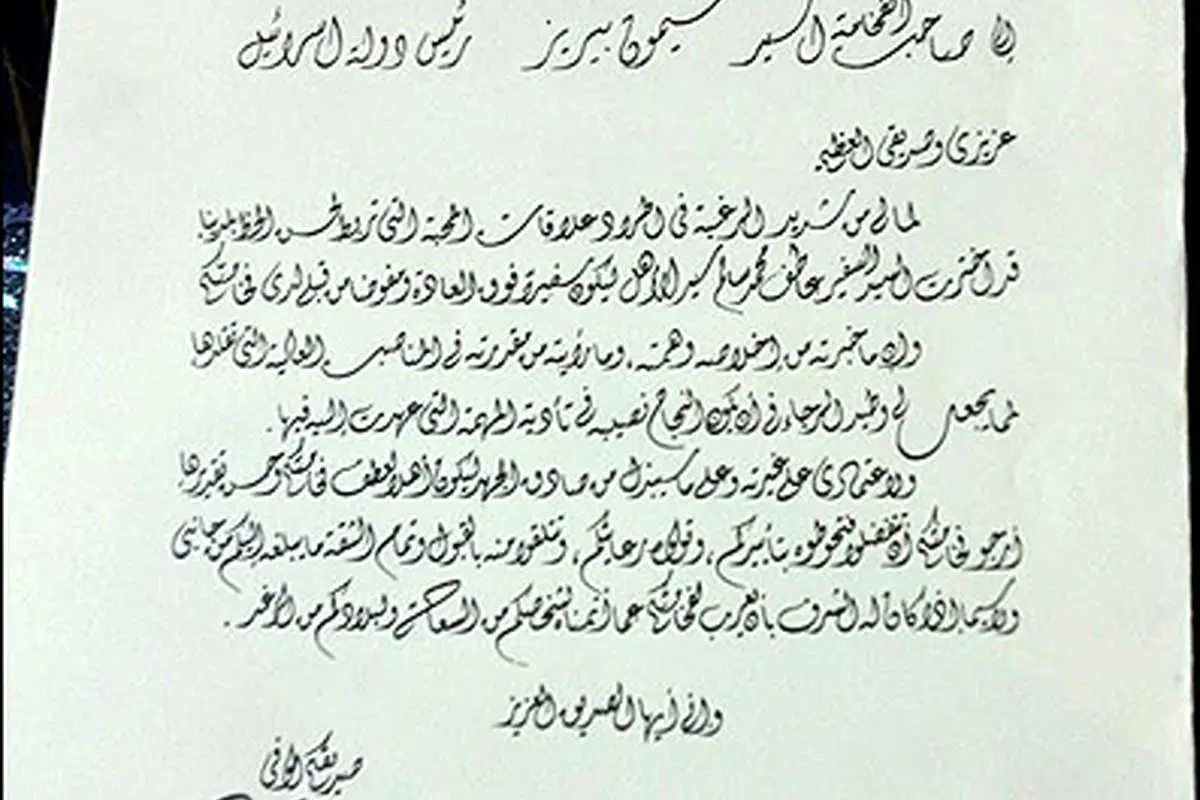 إلى صاحب الفخامة السيد شيمون بيريز رئيس دولة إسرائيل
عزيزى وصديقى العظيم
لما لى من شديد الرغبة فى اطراد علاقات المحبة التى تربط لحسن الحظ بلدينا
قد اخترت السيد السفير عاطف محمد سالم سيد الأهل ليكون سفيرا فوق العادة ومفوضا من قبلى لدى فخامتكم
وإن ما خبرته من إخلاصه وهمته، وما رأيته من مقدرته فى المناصب العالية التى تقلدها
مما يجعل لى وطيد الرجاء فى أن يكون النجاح نصيبه فى تأدية المهمة التى عهدت إليه فيها.
ولاعتمادى على غيرته وعلى ما سيبذل من صادق الجهد ليكون أهلا لعطف فخامتكم وحسن تقديرها
أرجو فخامتكم أن تتفضلوا فتحوطوه بتأييدكم، وتولوه رعايتكم، وتتلقوا منه بالقبول وتمام الثقة ما يبلغه إليكم من جانبى
ولا سيما إذا كان له الشرف بأن يعرب لفخامتكم عما أتمناه لشخصكم من السعادة ولبلادكم من الرغد.
وإنى أيها الصديق العزيز
صديقكم الوفى